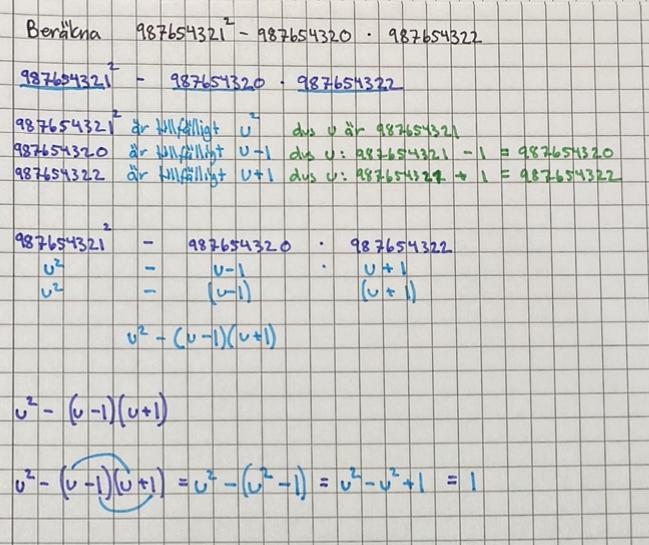 Beräkna 987654321² - 987654320 · 987654322
987654321² - 987654320 · 987654322
987654321² är tillfälligt u² dvs u är 987654321
987654320 är tillfälligt u-1 dvs u: 987654321 - 1 = 987654320
987654322 är tillfälligt u+1 dvs u: 987654321 + 1 = 987654322
987654321² - 987654320 · 987654322
u² - u-1 · u+1
u² - (u-1) (u+1)
u² - (u-1)(u+1)
u² - (u-1)(u+1)
u² - (u-1)(u+1) = u² - (u²-1) = u² - u² + 1 = 1